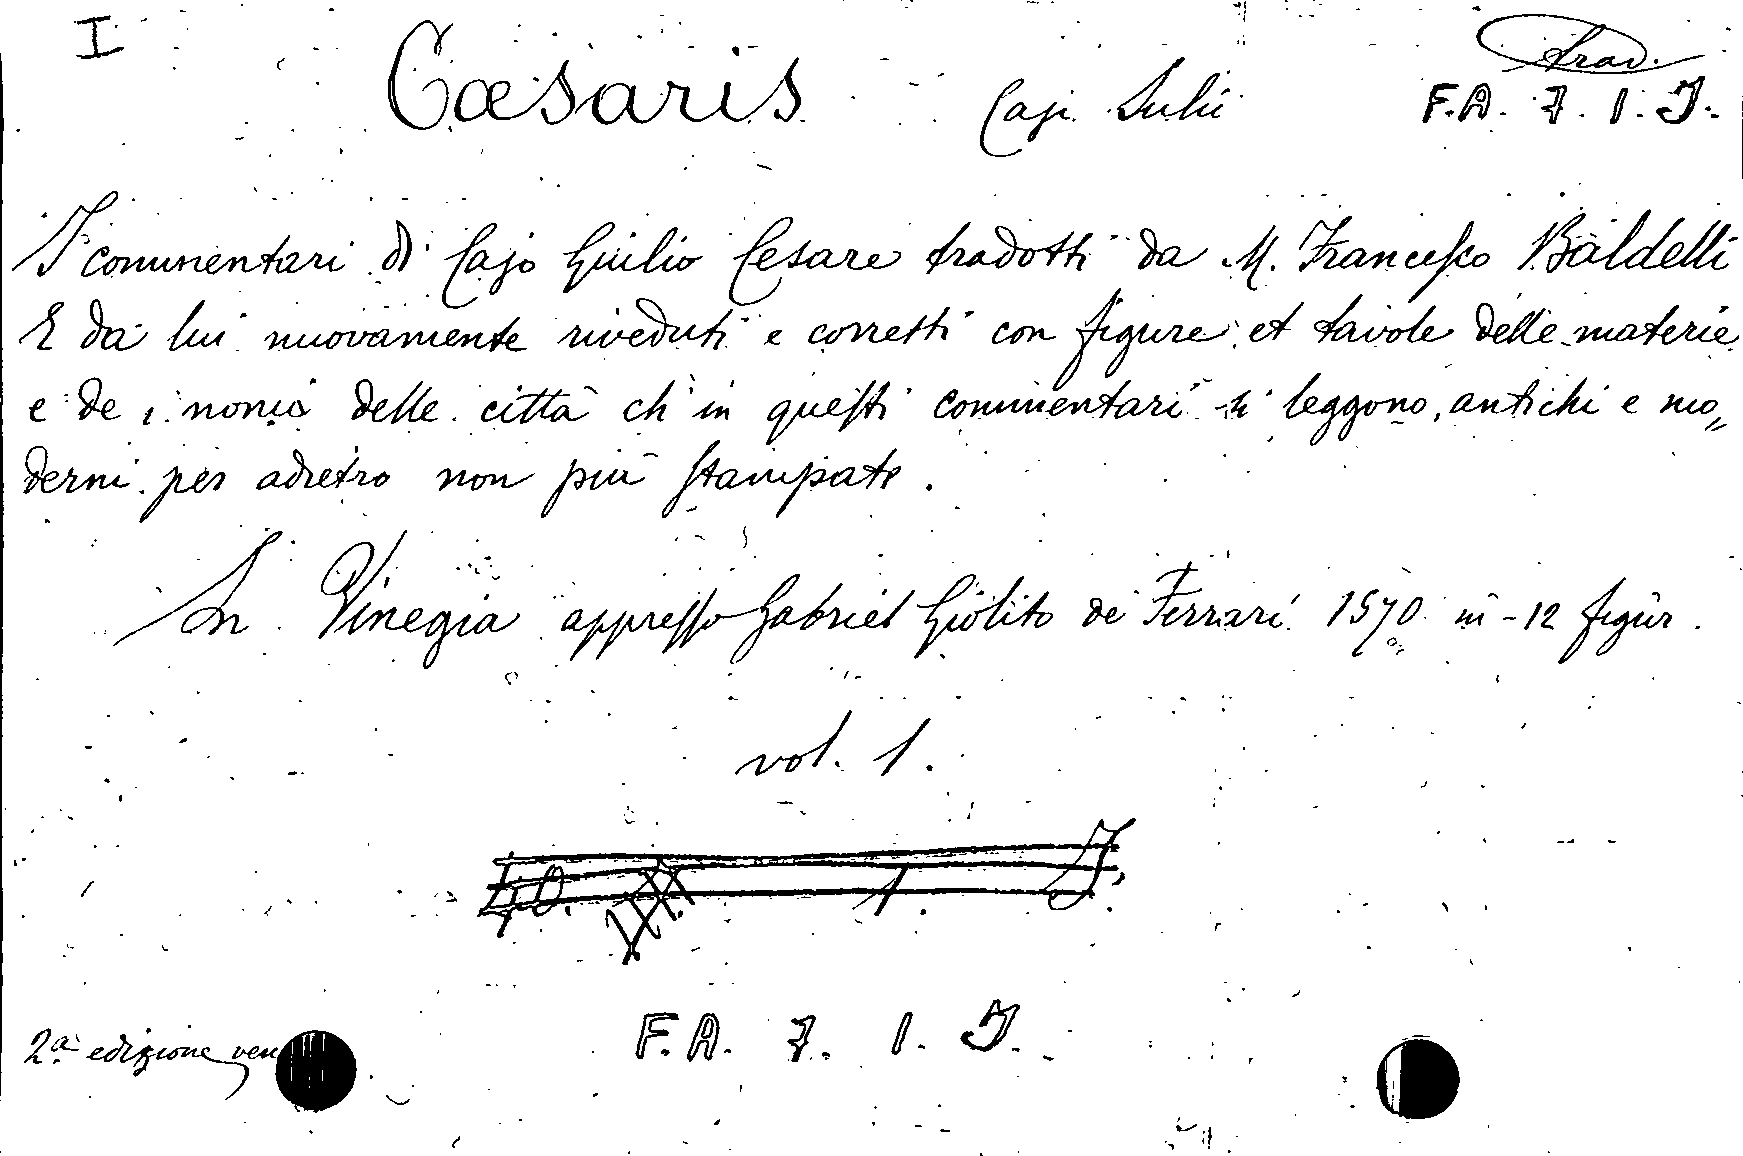 I
Trad.
Cæsaris Caji Julii
F.A. 7. 1. I.
I commentari di Cajo Giulio Cesare tradotti da M. Francesco Baldelli
E da lui nuovamente riveduti e corretti con figure et tavole delle materie
e de i nomi delle città ch' in questi commentari si leggono, antichi e mo„
derni per adietro non più stampate.
In Vinegia appresso Gabriel Giolito de Ferrari 1570 in-12 figur.
vol. 1.
F.A. 7. 1. I.
2ª edizione ven